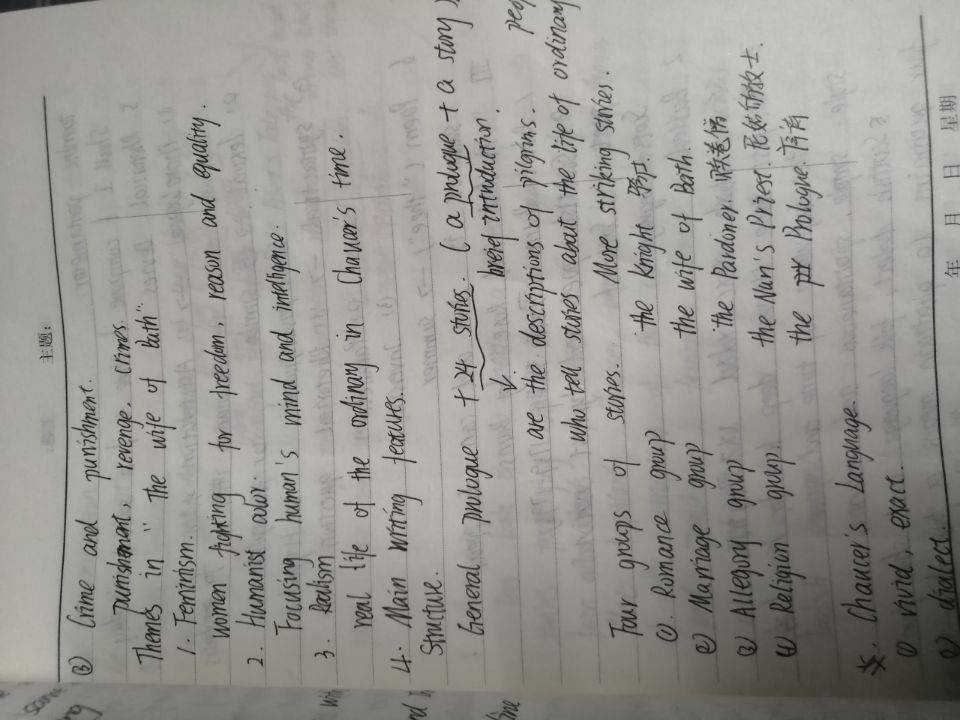 主题:
③ Crime and punishment.
punishment, revenge, crimes.
Themes in "the wife of bath".
1. Feminism.
women fighting for freedom, reason and equality.
2. Humanist color.
Focusing human's mind and intelligence.
3. Realism
real life of the ordinary in Chaucer's time.
4. Main writing features.
Structure.
General prologue + 24 stories. (a prologue + a story)
↓ breif introduction.
are the descriptions of pilgrims.
who tell stories about the life of ordinary
Four groups of stories. More striking stories.
①. Romance group the Knight 骑士.
② Marriage group the wife of Bath.
③ Allegory group the Pardoner.
④ Religion group. the Nun's Priest
the Prologue.
※. Chaucer's Language.
① vivid, exact.
② dialect.
年 月 日 星期